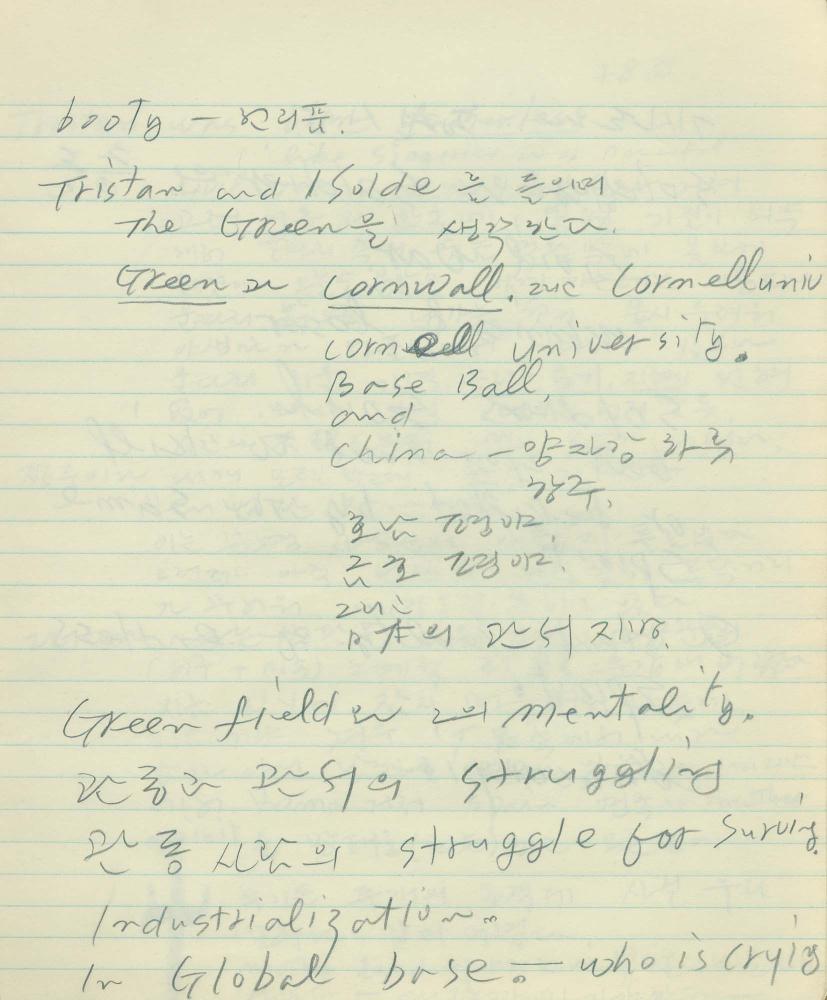 booty - 전리품.
Tristan and Isolde를 들으며
The Green을 생각한다.
Green과 Cornwall. 그리고 Cornell univ
Cornell university.
Base Ball,
and
China - 양자강 하류
항주.
호남 평야
금호 평야.
그리고
日本의 관서 지방.
Green field와 그의 mentality.
관동과 관서의 struggling
관동 사람의 struggle for surviving
Industrialization.
In Global base. - who is crying